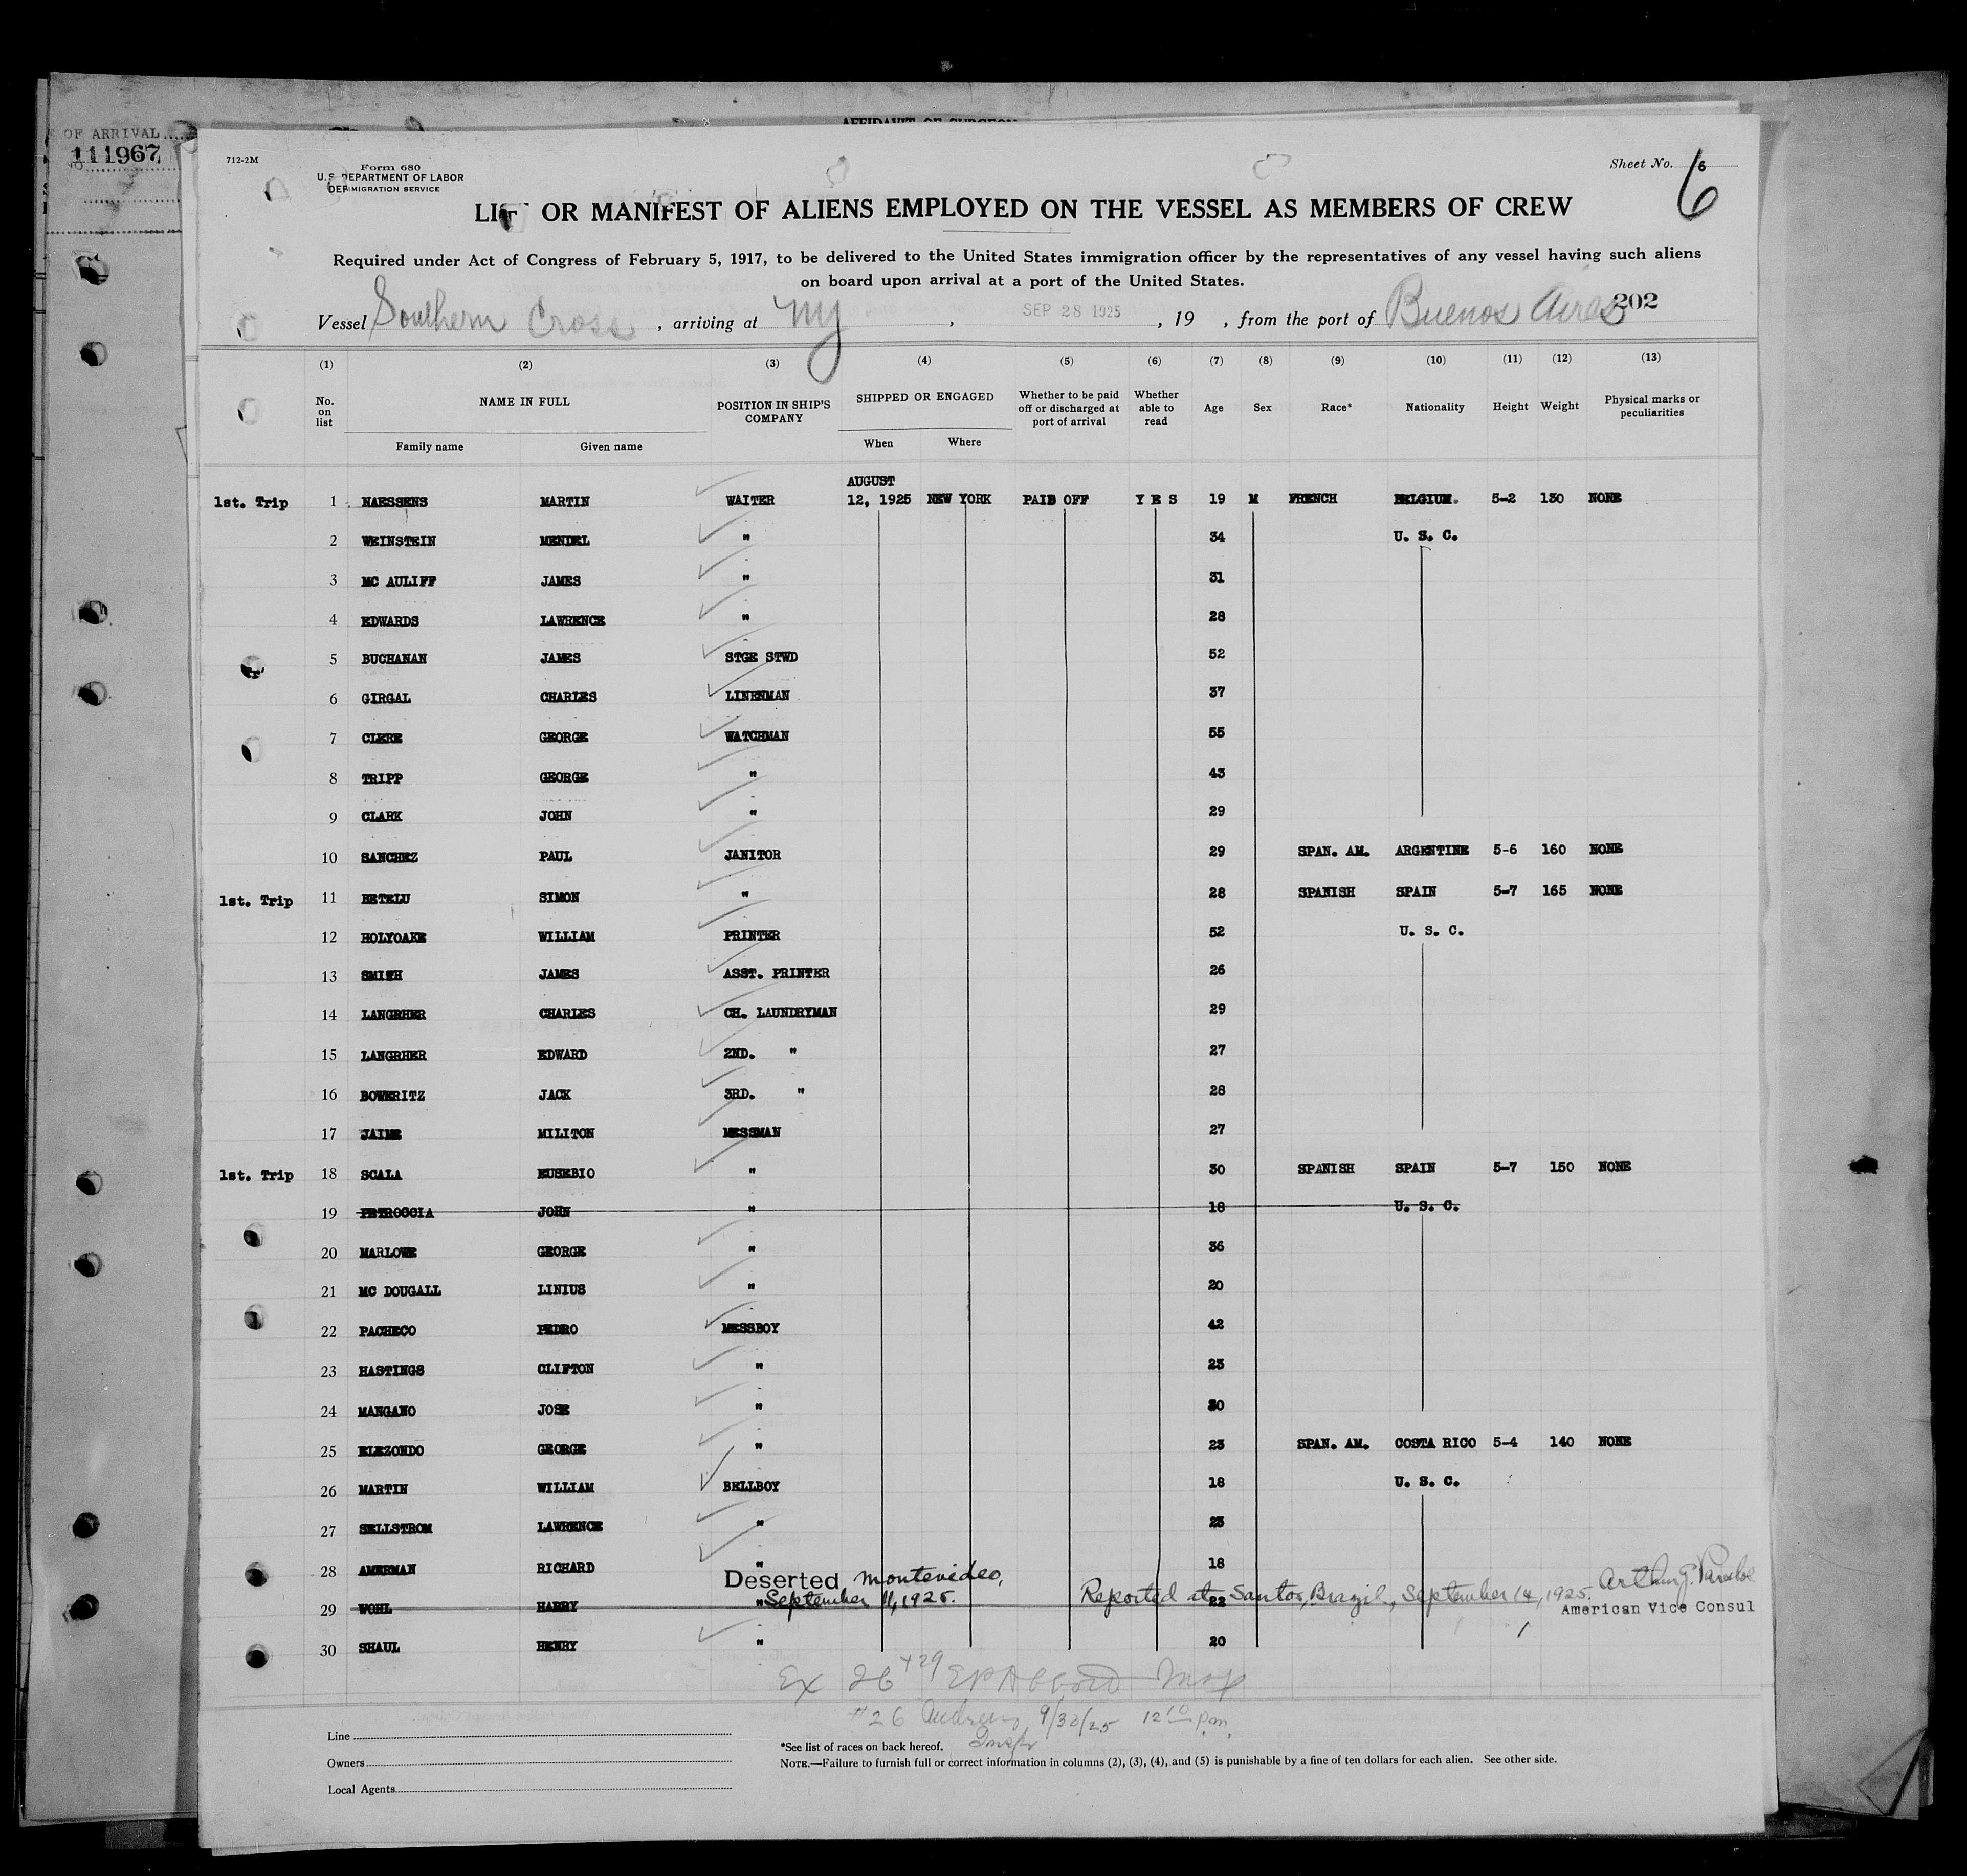 OF ARRIVAL
111967
AFFIDAVIT OF SURGEON
712-2M
Form 680
U.S. DEPARTMENT OF LABOR
IMMIGRATION SERVICE
Sheet No. 6
6
LIST OR MANIFEST OF ALIENS EMPLOYED ON THE VESSEL AS MEMBERS OF CREW
Required under Act of Congress of February 5, 1917, to be delivered to the United States immigration officer by the representatives of any vessel having such aliens
on board upon arrival at a port of the United States.
Vessel Southern Cross, arriving at NY, SEP 28 1925, 19 , from the port of Buenos Aires 202
(1) (2) (3) (4) (5) (6) (7) (8) (9) (10) (11) (12) (13)
No. on list NAME IN FULL POSITION IN SHIP'S COMPANY SHIPPED OR ENGAGED Whether to be paid off or discharged at port of arrival Whether able to read Age Sex Race* Nationality Height Weight Physical marks or peculiarities
Family name Given name When Where
AUGUST
1st. Trip 1 NAESSENS MARTIN WAITER 12, 1925 NEW YORK PAID OFF YES 19 M FRENCH BELGIUM. 5-2 130 NONE
2 WEINSTEIN MENDEL " 34 U. S. C.
3 MC AULIFF JAMES " 31
4 EDWARDS LAWRENCE " 28
5 BUCHANAN JAMES STGE STWD 52
6 GIRGAL CHARLES LINENMAN 37
7 CLERE GEORGE WATCHMAN 55
8 TRIPP GEORGE " 43
9 CLARK JOHN " 29
10 SANCHEZ PAUL JANITOR 29 SPAN. AM. ARGENTINE 5-6 160 NONE
1st. Trip 11 BETELU SIMON " 28 SPANISH SPAIN 5-7 165 NONE
12 HOLYOAKE WILLIAM PRINTER 52 U. S. C.
13 SMITH JAMES ASST. PRINTER 26
14 LANGRHER CHARLES CH. LAUNDRYMAN 29
15 LANGRHER EDWARD 2ND. " 27
16 BOWERITZ JACK 3RD. " 28
17 JAIME MILITON MESSMAN 27
1st. Trip 18 SCALA EUSEBIO " 30 SPANISH SPAIN 5-7 150 NONE
19 PETROCCIA JOHN " 18 U. S. C.
20 MARLOWE GEORGE " 36
21 MC DOUGALL LINIUS " 20
22 PACHECO PEDRO MESSBOY 42
23 HASTINGS CLIFTON " 23
24 MANGANO JOSE " 30
25 ELEZONDO GEORGE " 23 SPAN. AM. COSTA RICO 5-4 140 NONE
26 MARTIN WILLIAM BELLBOY 18 U. S. C.
27 SELLSTROM LAWRENCE " 23
28 AMERMAN RICHARD " 18
Deserted Montevideo,
September 11, 1925. Reported at Santos, Brazil, September 14, 1925.
American Vice Consul
29 WOHL HARRY " 22
30 SHAUL HENRY " 20
Ex 26 + 29
#26 9/30/25 12 10 p.m.
Insp
Line
Owners
Local Agents
*See list of races on back hereof.
NOTE.—Failure to furnish full or correct information in columns (2), (3), (4), and (5) is punishable by a fine of ten dollars for each alien. See other side.